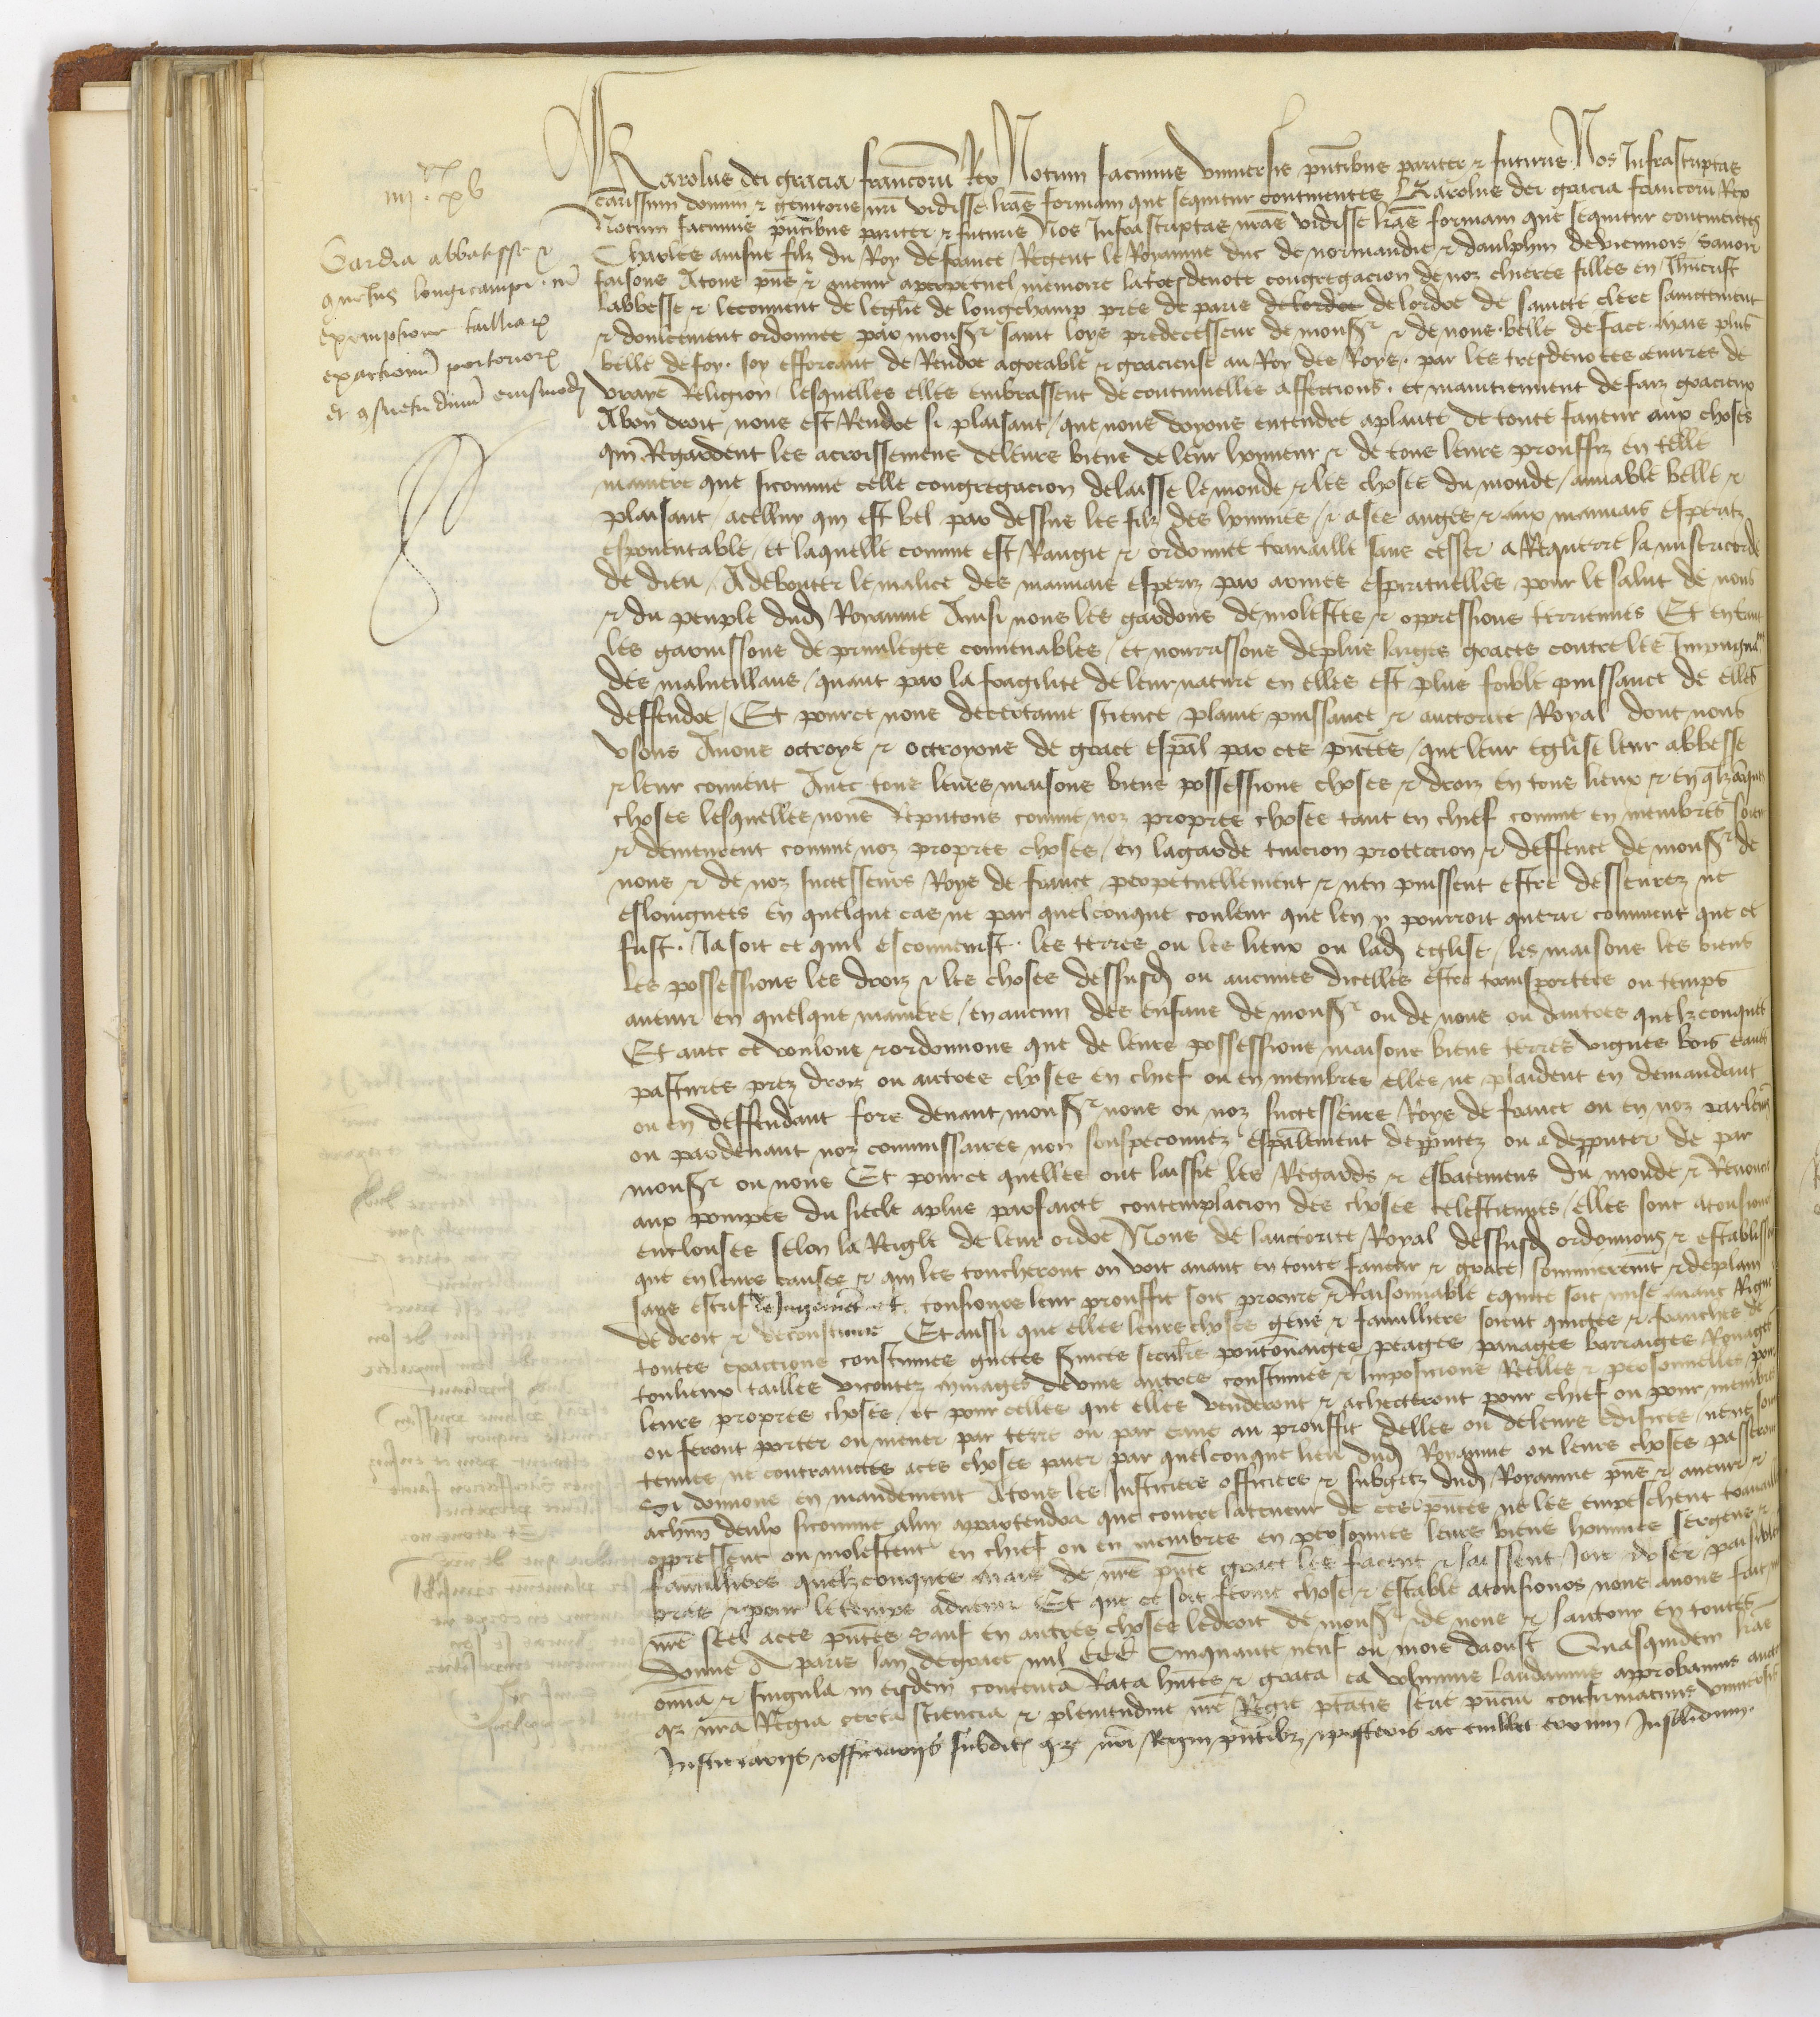 iiii xx xv
Gardia abbatisse et
conventus longicampi cum
exempsione tailliarum
exactionum portoriorum
et consuetudinum eiusmodi
Karolus dei gracia francorū Rex Notum facimus universis pñtibus pariter et futuris Nos Infrascriptas
carissimi domini et genitoris nr̄i vidisse lr̄as formam que sequitur continentes Karolus dei gracia francorū Rex
Notum facimus pñtibus pariter et futuris Nos Infrascriptas nr̄as vidisse lr̄as formam que sequitur continentes
Charles ainsne filz du Roy de france Regent le Royaume duc de normandie et daulphin de viennois savoir
faisons A tous pñs et avenir a perpetuel memoire la tresdevote congregacion de noz chieres filles en Jhūcrist
labbesse et le couvent de leglise de longchamp pres de paris de lordre de lordre de saincte clere sainctement
et doulcement ordonnee par monsr saint loys predecesseur de monsr et de nous belle de face mais plus
belle de foy soy efforcant de Rendre agreable et gracieuse au Roy des Roys par les tresdevotes œuvres de
vraye Religion lesquelles elles embrassent de continuelles affections et maintiennent de faiz gracieux
A bon droit nous est Rendre si plaisant que nous doyons entendre a plante de toute faveur aux choses
qui Regardent les acroissemens de leurs biens de leur honneur et de tous leurs prouffiz en telle
maniere que sicomme celle congregacion delaisse le monde et les choses du monde amiable belle et
plaisant a celluy qui est bel par dessus les filz des hommes et a ses anges et aux mauvais esperitz
espouentable et laquelle comme est Rangie et ordonnee travaille sans cesser a Requerre la misericorde
de dieu A debouter le malice des mauvais esperiz par armes espirituelles pour le salut de nous
et du peuple dud Royaume Ainsi nous les gardons de molestes et oppressions terriennes Et
les garnissons de privileges convenables et nourrissons de plus larges graces contre les Impugna
des malveillans quant par la fragilite de leur nature en elles est plus foible puissance de elles
deffendre Et pource nous de certaine science plaine puissance et auctorite Royal dont nous
usons Avons octroye et octroyons de grace esp̄al par ces pñtes que leur eglise leur abbesse
et leur couvent Avec tous leurs maisons biens possessions choses et droiz en tous lieux et en
choses lesquelles nous Reputons comme noz propres choses tant en chief comme en membres soient
et demeurent comme noz propres choses en la garde tuicion protection et deffence de monsr de
nous et de noz successeurs Roys de france perpetuellement et nen puissent estre desseurez ne
esloingnees en quelque cas ne par quelconque couleur que len y pourroit querir comment que ce
fust Ja soit ce quil esconvenist les terres ou les lieux ou lad eglise les maisons les biens
les possessions les droiz et les choses dessusd ou aucunes dicelles estre transportees ou temps
avenir en quelque maniere en aucun des enfans de monsr ou de nous ou dautres quelzconques
Et avec ce voulons et ordonnons que de leurs possessions maisons biens terres vignes bois eaues
pastures prez droiz ou autres choses en chief ou en membres elles ne plaident en demandant
ou en deffendant fors devant monsr nous ou noz successeurs Roys de france ou en noz parlemēs
ou pardevant noz commissaires non souspeconnez esp̄alement depputez ou a depputer de par
monsr ou nous Et pource quelles ont laissie les Regards et esbatemens du monde et Renonce
aux pompes du siecle a plus parfaicte contemplacion des choses celestiennes elles sont a tousiours
enclouses selon la Reigle de leur ordre Nous de lauctorite Royal dessusd ordonnons et establissons
que en leurs causes et qui les toucheront on voit avant en toute faveur et grace sommierem̄t et de plain
sans estrif de Jugement tousiours leur prouffit soit procure et Raisonnable equite soit mise avant Rigueur
de droit et de coustume Et aussi que elles leurs choses gens et familliers soient quictes et franches de
toutes exaccions coustumes guetes seculiers pontonnaiges peages panages barraiges Rouages
tonlieux tailles vicontez vinages devins autres coustumes et Imposicions Reelles et personnelles pour
leurs propres choses et pour celles que elles vendront et acheteront pour chief ou pour membres
ou feront porter ou mener par terre ou par eaue au prouffit delles ou de leurs edifices ne ne soient
tenues ne contraintes a ces choses paier par quelconque lieu dud Royaume ou leurs choses passeront
Si donnons en mandement A tous les Justiciers officiers et subgetz dud Royaume pñs et avenir et
a chūn deulx sicomme a luy appartendra que contre la teneur de ces pñtes ne les empeschent travaillent
oppressent ou molestent en chief ou en membres en personnes leurs biens hommes sergens et
familliers quelzconques mais de nr̄e pñte grace les facent et laissent Joir et user paisiblement
et pour le temps advenir Et que ce soit ferme chose et estable a tousiours nous avons fait mettre
nr̄e seel a ces pñtes sauf en autres choses le droit de monsr et de nous et lautruy en toutes
Donne A paris lan de grace mil CCC Cinquante neuf ou mois daoust Quasquidem lr̄as
omnia et singula in eisdem contenta Rata hñtes et grata ea volumus laudamus approbamus
nr̄a Regia certa sciencia et plenitudine nr̄e Regie ptatis serie pñciū confirmamus universis
Justiciariis et officiariis subditis nr̄i Regni pñtibz et posteris ac cuilibet eorum Insolidum